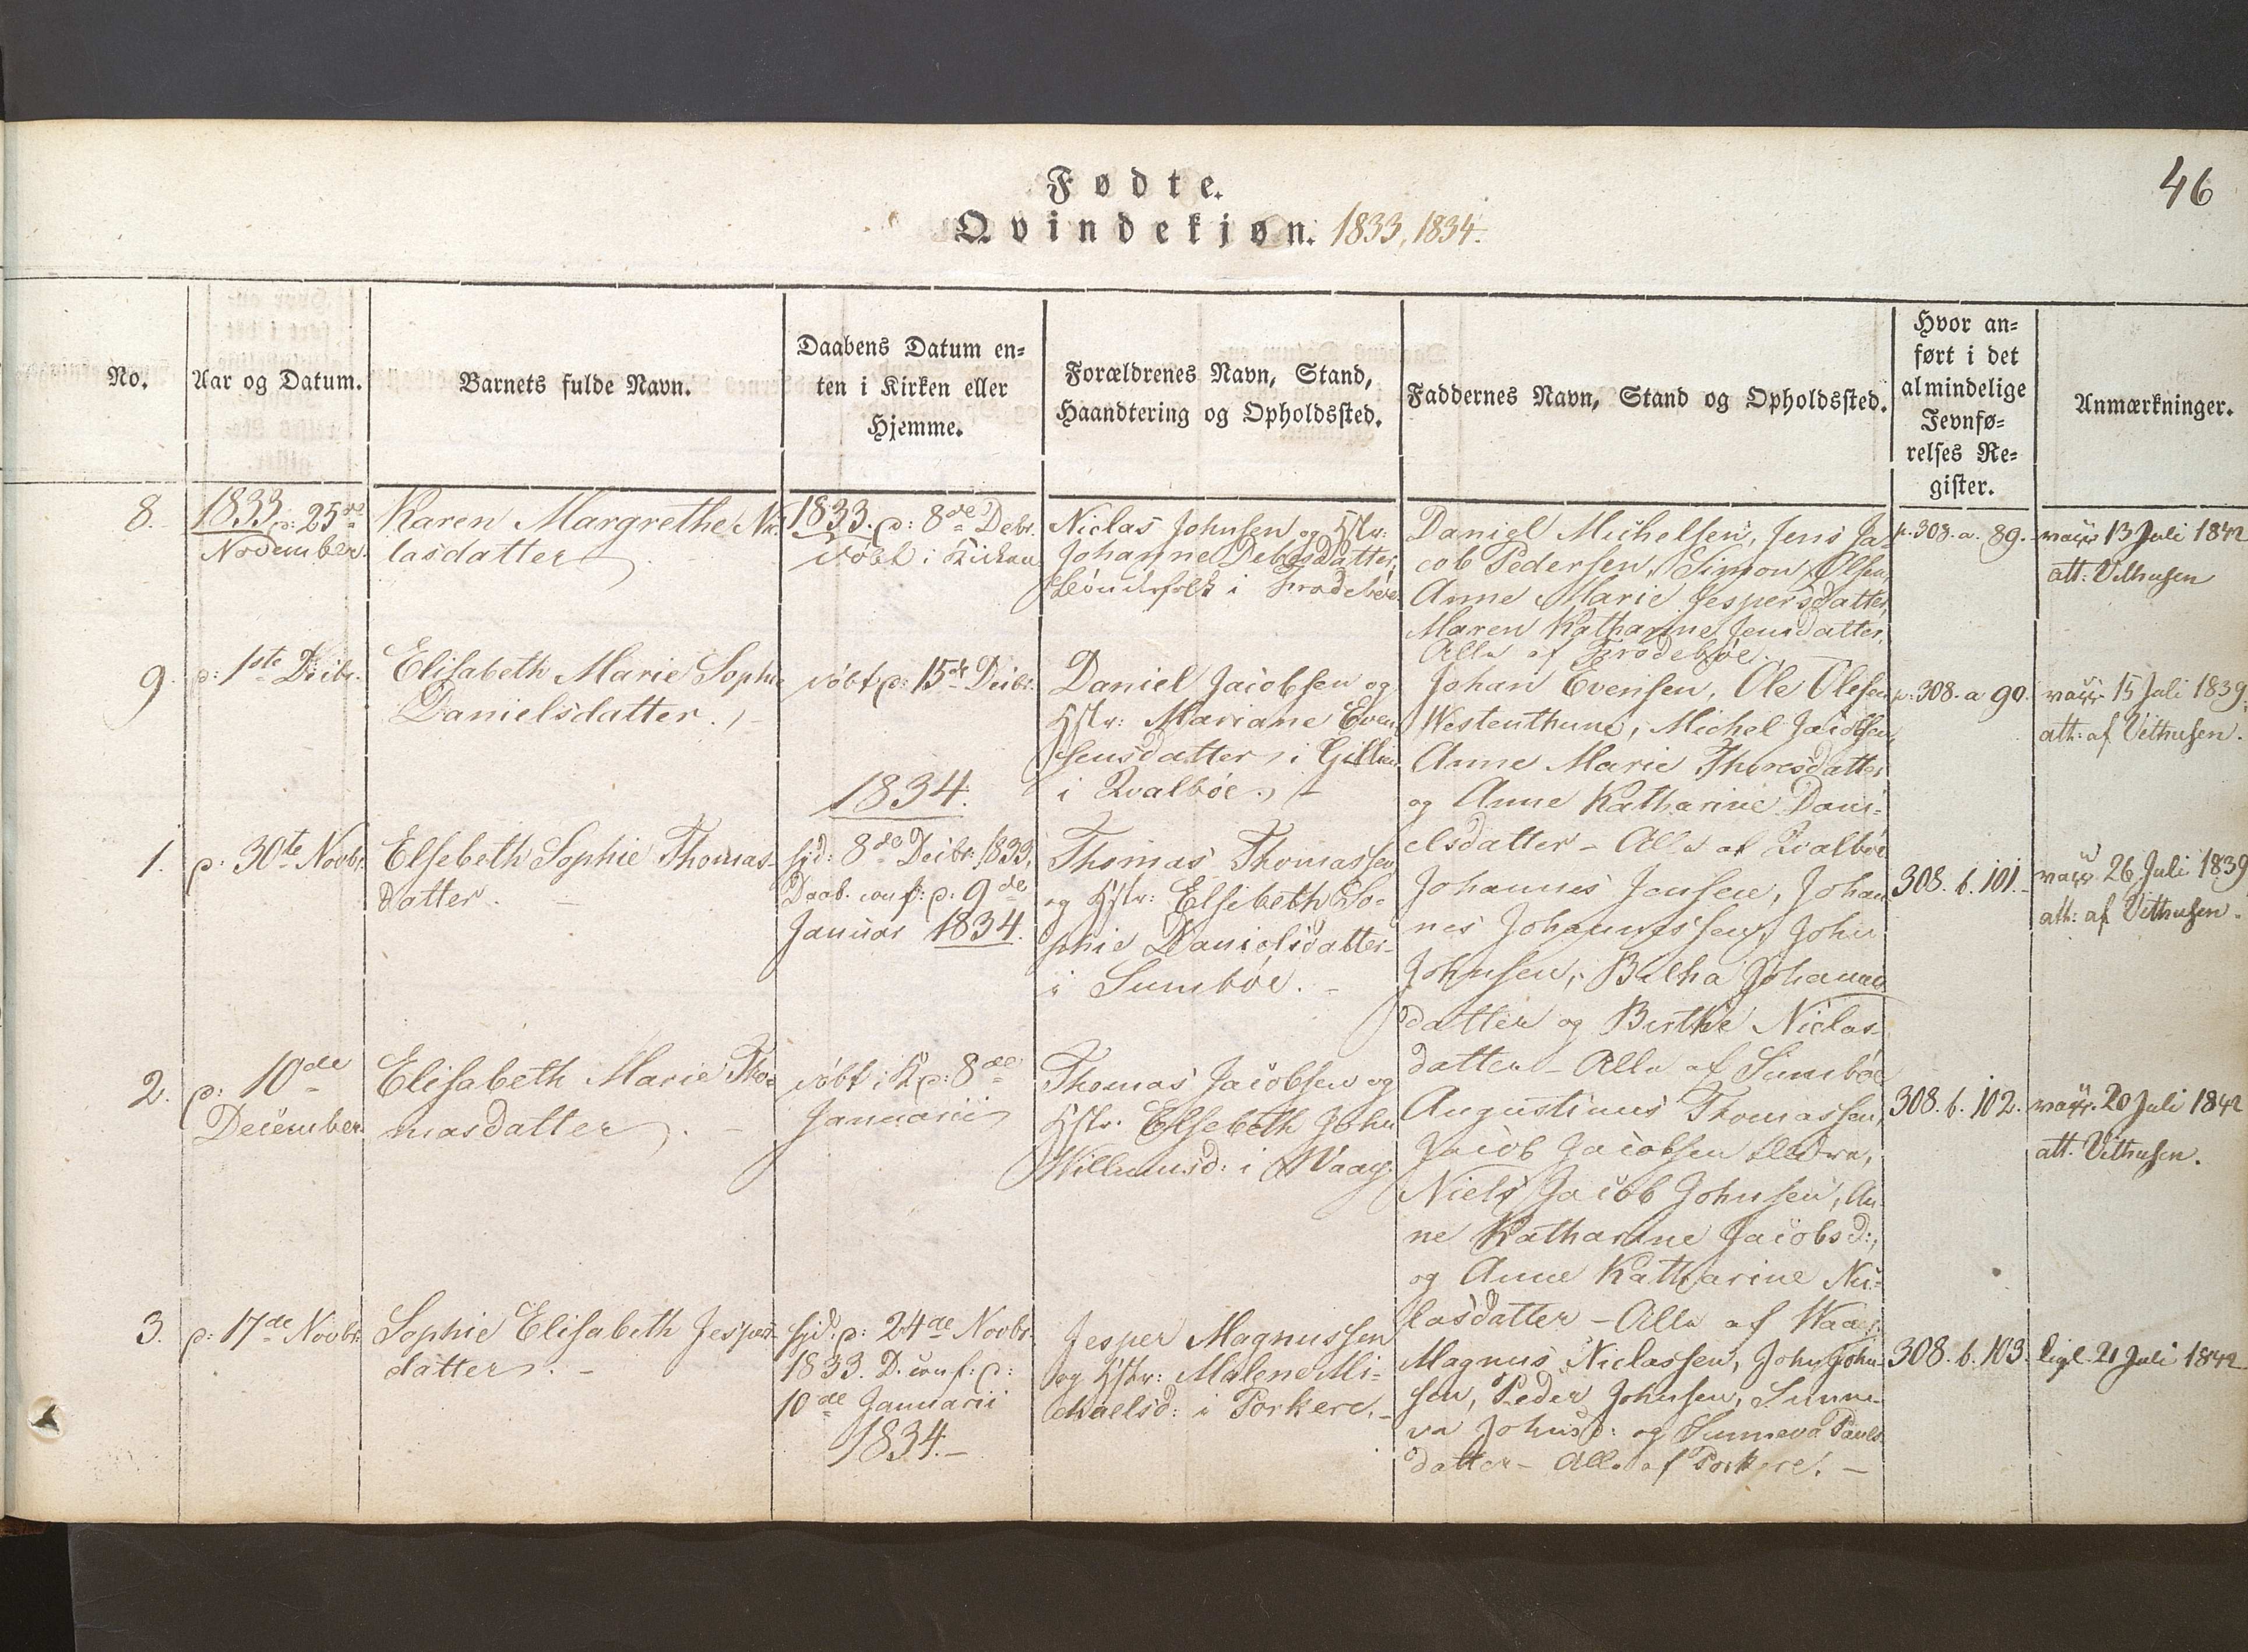 46
Fødte.
Qvindekjøn. 1833, 1834.
No.
Aar og Datum.
Barnets fulde Navn.
Daabens Datum en-
ten i Kirken eller
Hjemme.
Forældrenes Navn, Stand,
Haandtering og Opholdssted.
Faddernes Navn, Stand og Opholdssted.
Hvor an-
ført i det
almindelige
Jevnfø-
relses Re-
gister.
Anmærkninger.
8.
1833. d: 25de
November.
Karen Margrethe Nic-
lasdatter
1833. d: 8de Debr.
döbt i Kirken
Niclas Johnsen og Hstr:
Johanne Debesdatter,
Bönderfolk i Frodeböe
Daniel Michelsen, Jens Ja-
cob Pedersen, Simon Olsen,
Anne Marie Jespersdatter,
Maren Katharine Jensdatter,
Alle af Frodebøe.
p. 308. a. 89.
vacc 13 Juli 1842
att: Vithusen
9.
d: 1ste Decbr.
Elisabeth Marie Sophie
Danielsdatter.
döbt d: 15de Decbr.
Daniel Jacobsen og
Hstr: Mariane Even
sensdatter i
i Qvalböe.
Johan Evensen, Ole Olesen
Westenthune, Michel Jacobsen,
Anne Marie Thoresdatter
og Anne Katharine Dani-
elsdatter - Alle af Qvalböe
p. 308. a 90.
vacc 15 Juli 1839.
att: af Vithusen.
1834.
1.
d: 30te Novbr.
Elsebeth Sophie Thomas-
datter.
hjd: 8de Decbr. 1833,
Daab. conf: d: 9de
Januar 1834.
Thomas Thomassen
og Hstr: Elsebeth So-
phie Danielsdatter
i Sumböe.
Johannes Jensen, Johan
nes Johannessen, John
Johnsen, Billha Johannes
datter og Birthe Niclas-
datter - Alle af Sumböe
308. b. 101.
vacc 26 Juli 1839
att: af Vithusen.
2.
d: 10de
December
Elisabeth Marie Tho-
masdatter
döbt i K d: 8de
Januarii
Thomas Jacobsen og
Hstr. Elsebeth John
Willumsd: i Waag.
Augustinus Thomassen,
Jacob Jacobsen
Niels Jacob Johnsen, An-
ne Katharine Jacobsd:,
og Anne Katharine Nic-
lasdatter - Alle af Waag.
308. b. 102.
vacc. 20 Juli 1842
att. Vithusen.
3.
d: 17de Novbr.
Sophie Elisabeth Jespers-
datter.
hjd: d: 24de Novbr.
1833. D. conf: d:
10de Januarii
1834.
Jesper Magnussen
og Hstr: Malene Mi-
chaelsd: i Porkere.
Magnus Niclassen, John John-
sen, Peder Johnsen, Sunne-
va Johnsd: og Sunneva Pouls-
datter - Alle af Porkere.
308. b. 103.
ligl. 21 Juli 1842